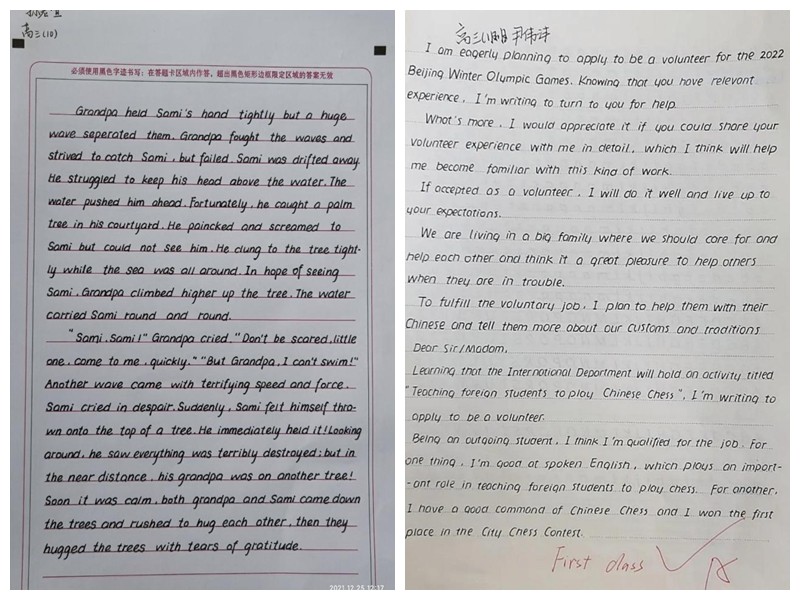 高三(10)
必须使用黑色字迹书写：在答题卡区域内作答，超出黑色矩形边框限定区域的答案无效
Grandpa held Sami's hand tightly but a huge
wave seperated them. Grandpa fought the waves and
strived to catch Sami, but failed. Sami was drifted away.
He struggled to keep his head above the water. The
water pushed him ahead. Fortunately, he caught a palm
tree in his courtyard. He paincked and screamed to
Sami but could not see him. He clung to the tree tight-
ly while the sea was all around. In hope of seeing
Sami, Grandpa climbed higher up the tree. The water
carried Sami round and round.
"Sami, Sami!" Grandpa cried, "Don't be scared, little
one, come to me, quickly." "But Grandpa, I can't swim!"
Another wave came with terrifying speed and force.
Sami cried in despair. Suddenly, Sami felt himself thro-
wn onto the top of a tree. He immediately held it! Looking
around, he saw everything was terribly destroyed; but in
the near distance, his grandpa was on another tree!
Soon it was calm, both grandpa and Sami came down
the trees and rushed to hug each other, then they
hugged the trees with tears of gratitude.
2021.12.25 12:17
高三
I am eagerly planning to apply to be a volunteer for the 2022
Beijing Winter Olympic Games. Knowing that you have relevant
experience, I'm writing to turn to you for help.
What's more, I would appreciate it if you could share your
volunteer experience with me in detail, which I think will help
me become familiar with this kind of work.
If accepted as a volunteer, I will do it well and live up to
your expectations.
We are living in a big family where we should care for and
help each other and think it a great pleasure to help others
when they are in trouble.
To fulfill the voluntary job, I plan to help them with their
Chinese and tell them more about our customs and traditions
Dear Sir/Madam,
Learning that the International Department will hold an activity titled
"Teaching foreign students to play Chinese Chess", I'm writing to
apply to be a volunteer.
Being an outgoing student, I think I'm qualified for the job. For
one thing, I'm good at spoken English, which plays an import-
-ant role in teaching foreign students to play chess. For another,
I have a good command of Chinese Chess and I won the first
place in the City Chess Contest.
First class